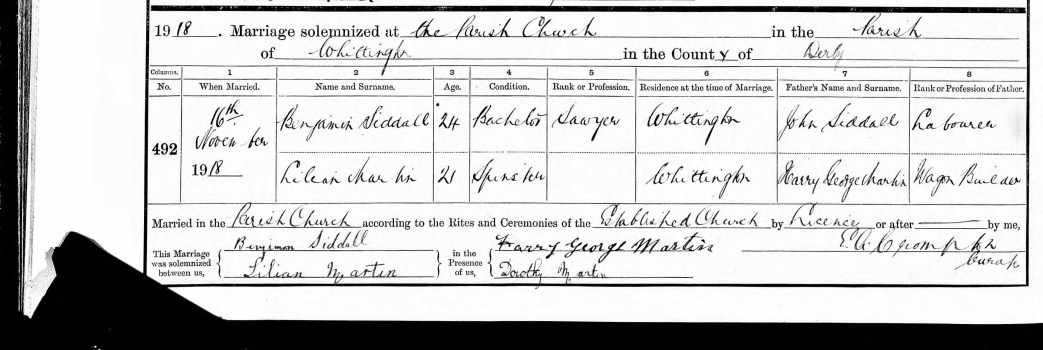 1918. Marriage solemnized at the Parish Church in the Parish
of Whittington in the County of Derby
Columns. 1 2 3 4 5 6 7 8
No. When Married. Name and Surname. Age. Condition. Rank or Profession. Residence at the time of Marriage. Father's Name and Surname. Rank or Profession of Father.
492 16th November 1918 Benjamin Siddall 24 Bachelor Sawyer Whittington John Siddall Labourer
Lilian Martin 21 Spinster Whittington Harry George Martin Wagon Builder
Married in the Parish Church according to the Rites and Ceremonies of the Established Church by Licence or after by me,
This Marriage was solemnized between us, Benjimon Siddall in the Presence of us, Harry George Martin
Lilian Martin Dorothy Martin Curate